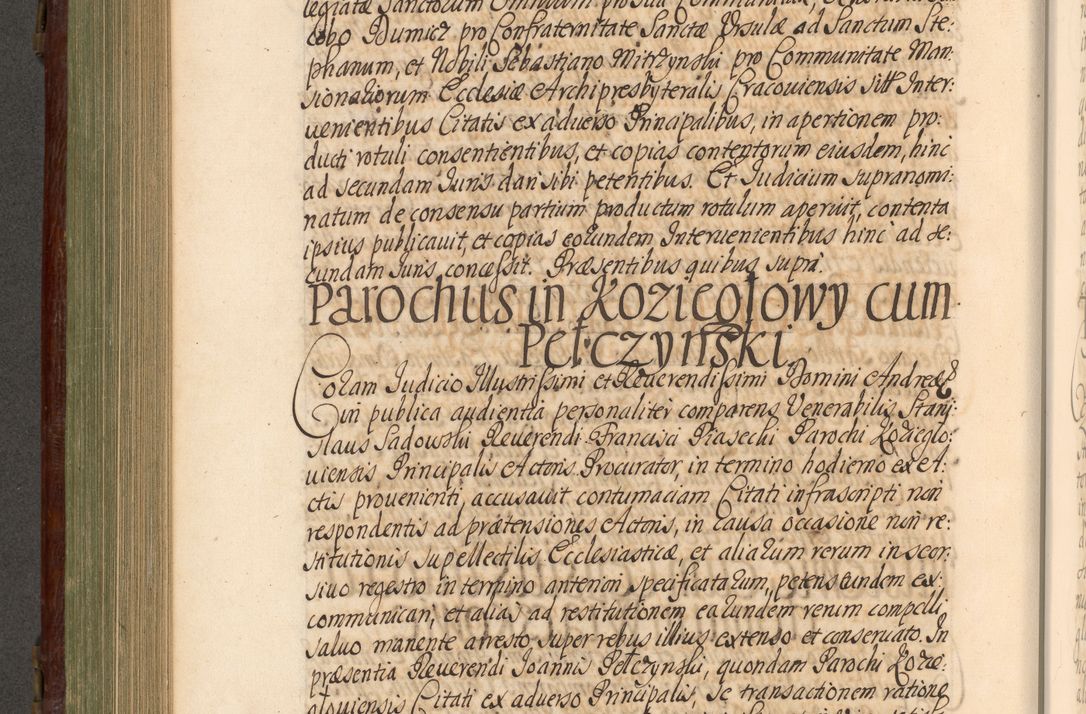 legiatæ Sanctorum Omnium pro sua Communitate,
cobo Dumicz pro Confraternitate Sanctæ Ursulæ ad Sanctum Ste:
phanum, et Nobili Sebastiano Mitrzynski pro Communitate Man:
sionariorum Ecclesiæ Archipresbyteralis Cracoviensis Sitt Inter:
uenientibus Citatis ex aduerso Principalibus, in apertionem pro:
ducti rotuli consentientibus, et copias contentorum eiusdem, hinc
ad secundam Juris dari sibi petentibus. Et Judicium supranomi:
natum de consensu partium productum rotulum aperuit, contenta
ipsius publicauit, et copias eorundem Interuenientibus hinc ad se:
cundam Juris concessit. Præsentibus quibus supra.
Parochus in Kozieglowy cum
Pełczynski.
Coram Judicio Illustrissimi et Reuerendissimi Domini Andreæ
in publica audientia personaliter comparens Venerabilis Stani:
slaus Sadowski Reuerendi Francisci Piasecki Parochi Kozieglo:
uiensis Principalis Actoris Procurator, in termino hodierno ex A:
ctis prouenienti, accusauit contumaciam Citati infrascripti non
respondentis ad prætensiones Actoris, in causa occasione non re:
stitutionis supellectilis Ecclesiasticæ, et aliarum rerum in seor:
siuo regestro in termino anteriori specificatarum, petens eundem ex:
communicari, et alias ad restitutionem earundem rerum compelli
saluo manente arresto super rebus illius extenso et conseruato. In
præsentia Reuerendi Joannis Pełczynski, quondam Parochi Kozie:
glouiensis Citati ex aduerso Principalis, se transactionem ratione